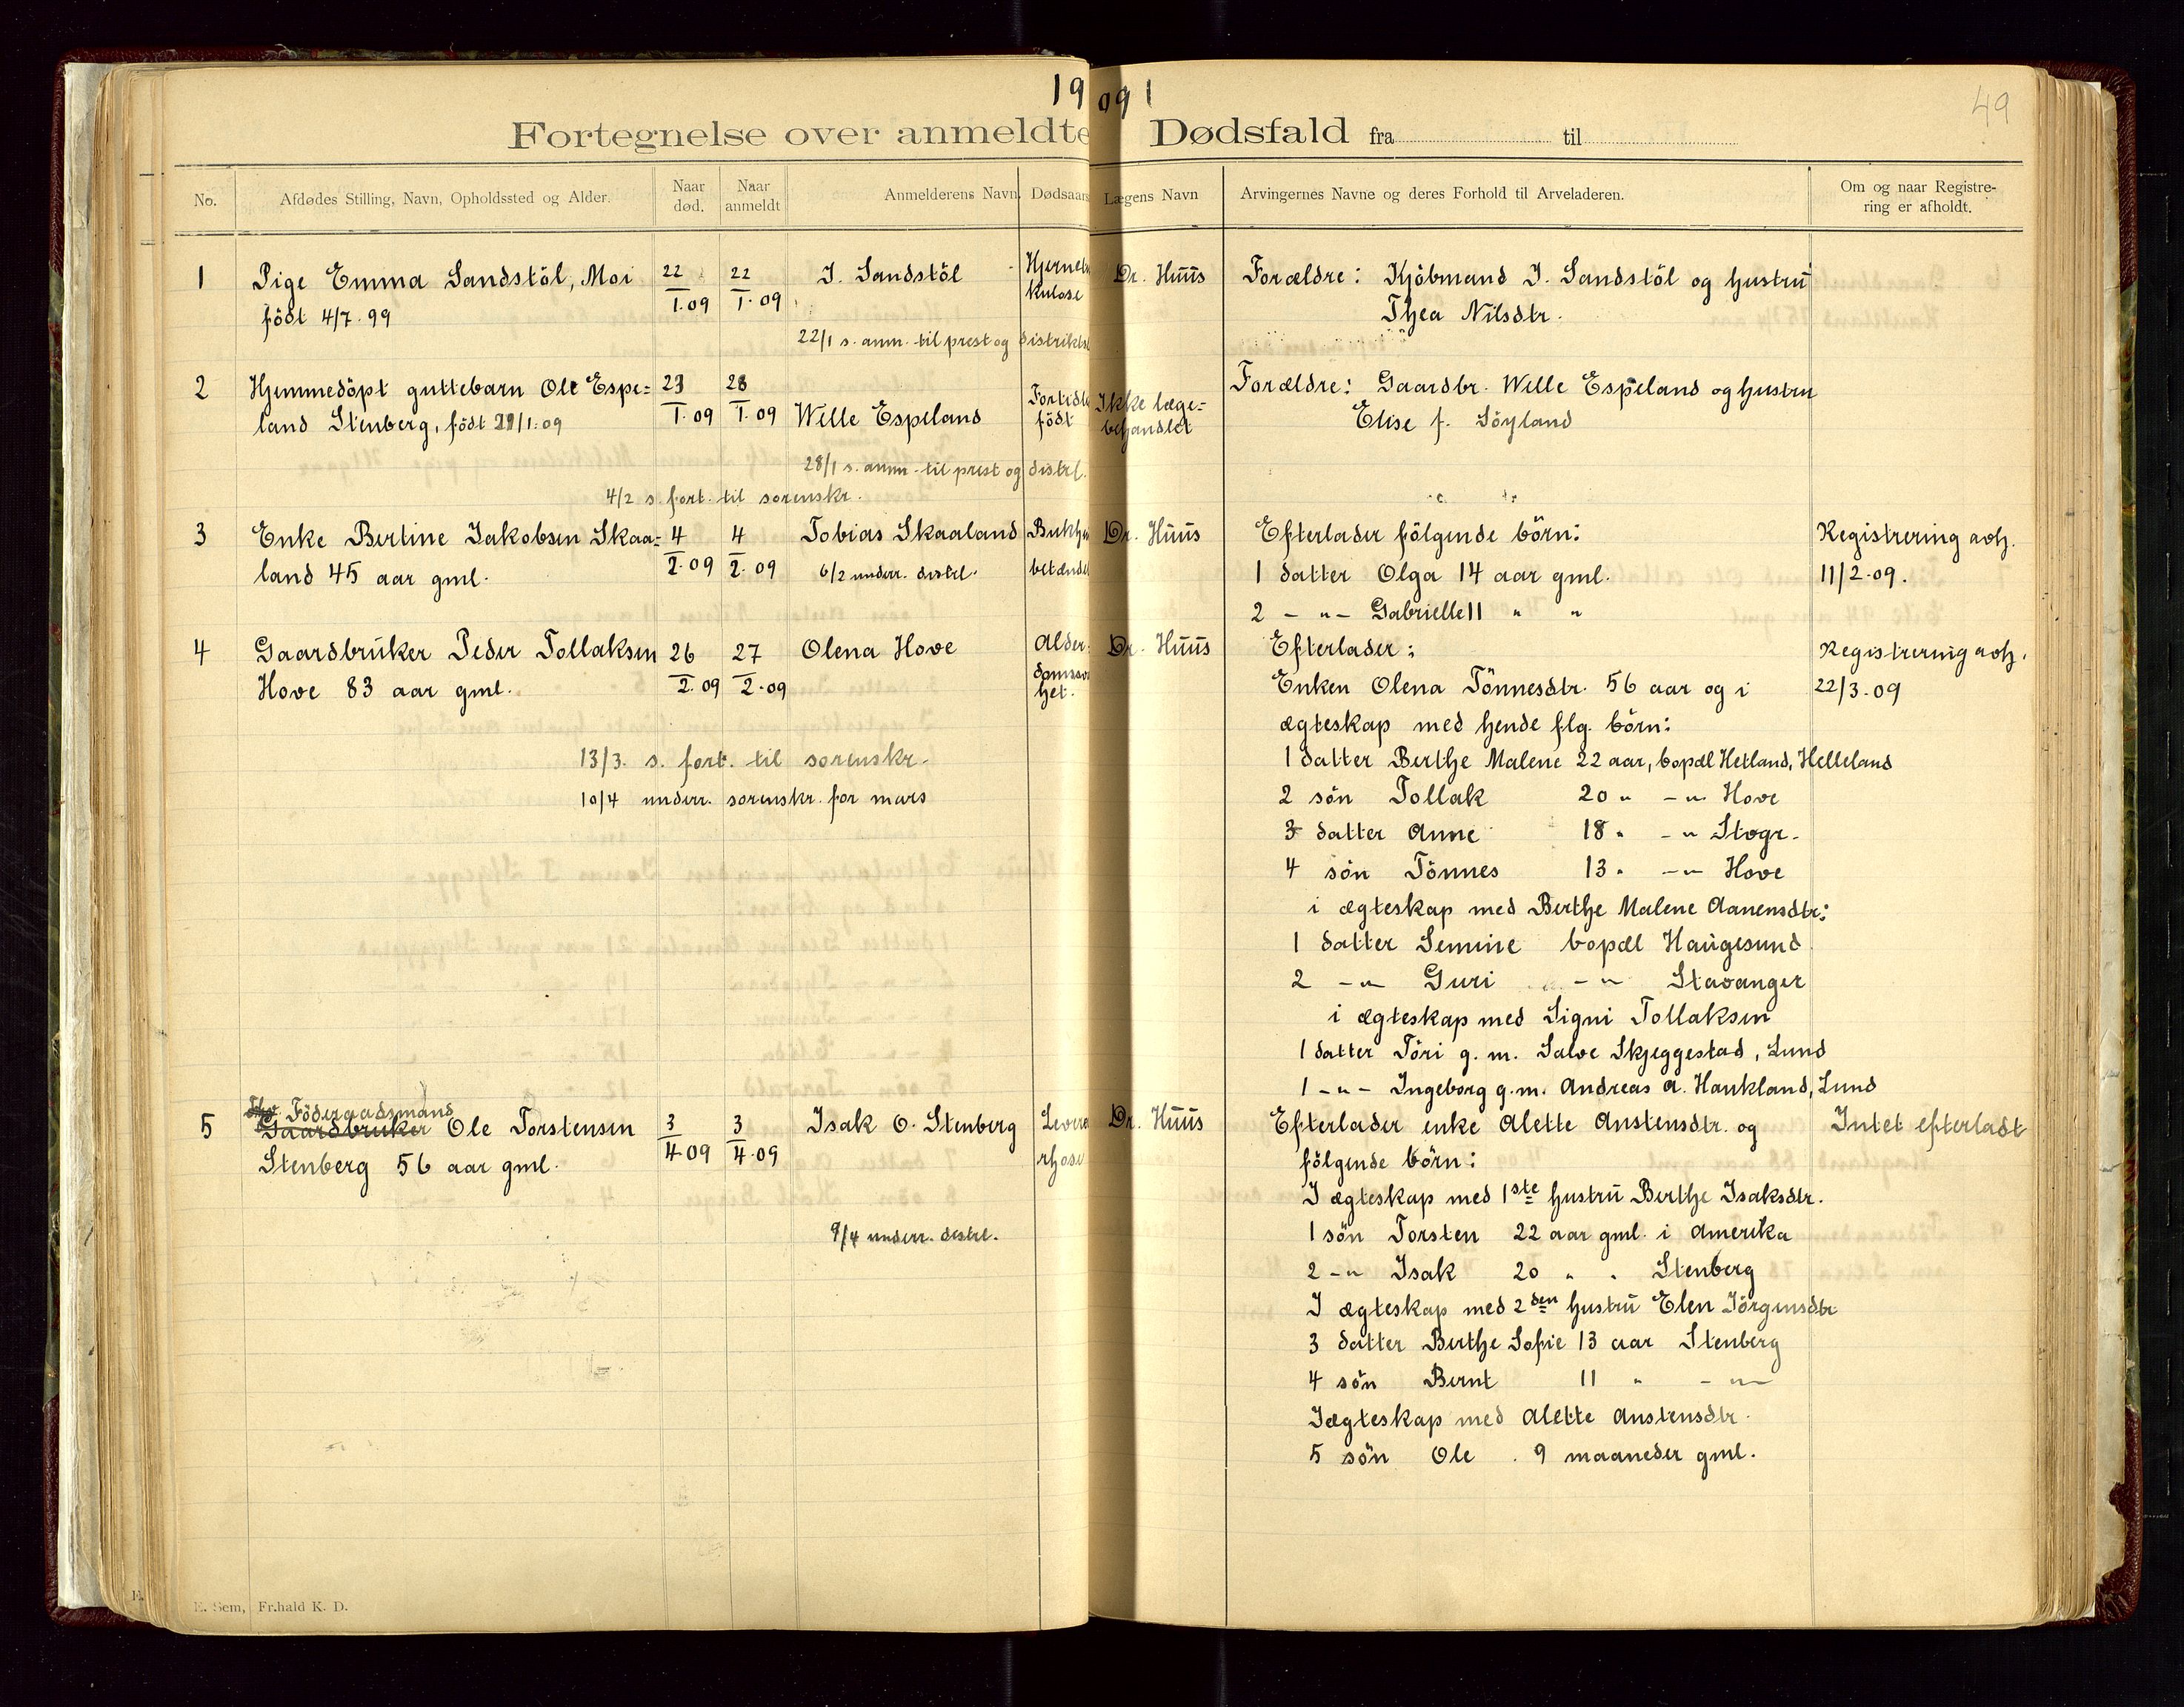 1909 1
49
Fortegnelse over anmeldte Dødsfald fra til
No.
Afdødes Stilling, Navn, Opholdssted og Alder.
Naar død.
Naar anmeldt
Anmelderens Navn.
Dødsaars
Lægens Navn
Arvingernes Navne og deres Forhold til Arveladeren.
Om og naar Registre-
ring er afholdt.
1 Pige Emma Sandstöl, Moi 22/1.09 22/1.09 J. Sandstöl Dr. Huus Forældre: Kjöbmand J. Sandstöl og hustru
födt 4/7.99 kulose Thea Nilsdtr.
22/1 s. anm. til prest og
2 Hjemmedöpt guttebarn Ole Espe= 23/1.09 28/1.09 Wille Espeland födt Ikke læge= behandlet Forældre: Gaardbr. Wille Espeland og hustru
land Stenberg, födt /1.09 Elise f. Söyland
28/1 s. anm. til prest og distrl.
4/2 s. fort. til sorenskr.
3 Enke Bertine Jakobsen Skaa= 4/2.09 4/2.09 Tobias Skaaland Dr. Huus Efterlader fölgende börn: Registrering avh.
land 45 aar gml. 6/2 underr. distrl. 1 datter Olga 14 aar gml. 11/2.09.
2 - " - Gabrielle 11 " "
4 Gaardbruker Peder Tollaksen 26/2.09 27/2.09 Olena Hove Alder= Dr. Huus Efterlader: Registrering avh.
Hove 83 aar gml. het. Enken Olena Tönnesdtr. 56 aar og i 22/3.09
ægteskap med hende flg. börn:
13/3. s. fort. til sorenskr. 1 datter Berthe Malene 22 aar, bopæl Hetland, Helleland
10/4 underr. sorenskr. for mars 2 sön Tollak 20 " - " Hove
3 datter Anne 18 " - " Stogr.
4 sön Tönnes 13 " - " Hove
i ægteskap med Berthe Malene Aanensdtr:
1 datter Semine bopæl Haugesund
2 - " Guri - " Stavanger
i ægteskap med Signi Tollaksen
1 datter Töri g. m. Salve Skjeggestad, Lund
1 - " - Ingeborg g.m. Andreas A. Haukland, Lund
Föderaadsmand
5 Gaardbruker Ole Torstensen 3/4.09 3/4.09 Isak O. Stenberg Dr. Huus Efterlader enke Alette Anstensdtr. og Intet efterladt
Stenberg 56 aar gml. fölgende börn:
I ægteskap med 1ste hustru Berthe Isaksdtr.
9/4 underr. distrl. 1 sön Torsten 22 aar gml. i Amerika
2 - " Isak 20 " " Stenberg
I ægteskap med 2den hustru Elen Jörgensdtr
3 datter Berthe Sofie 13 aar Stenberg
4 sön Bernt 11 " - " -
I ægteskap med Alette Anstensdtr.
5 sön Ole 9 maaneder gml.
E. Sem, Fr.hald K. D.